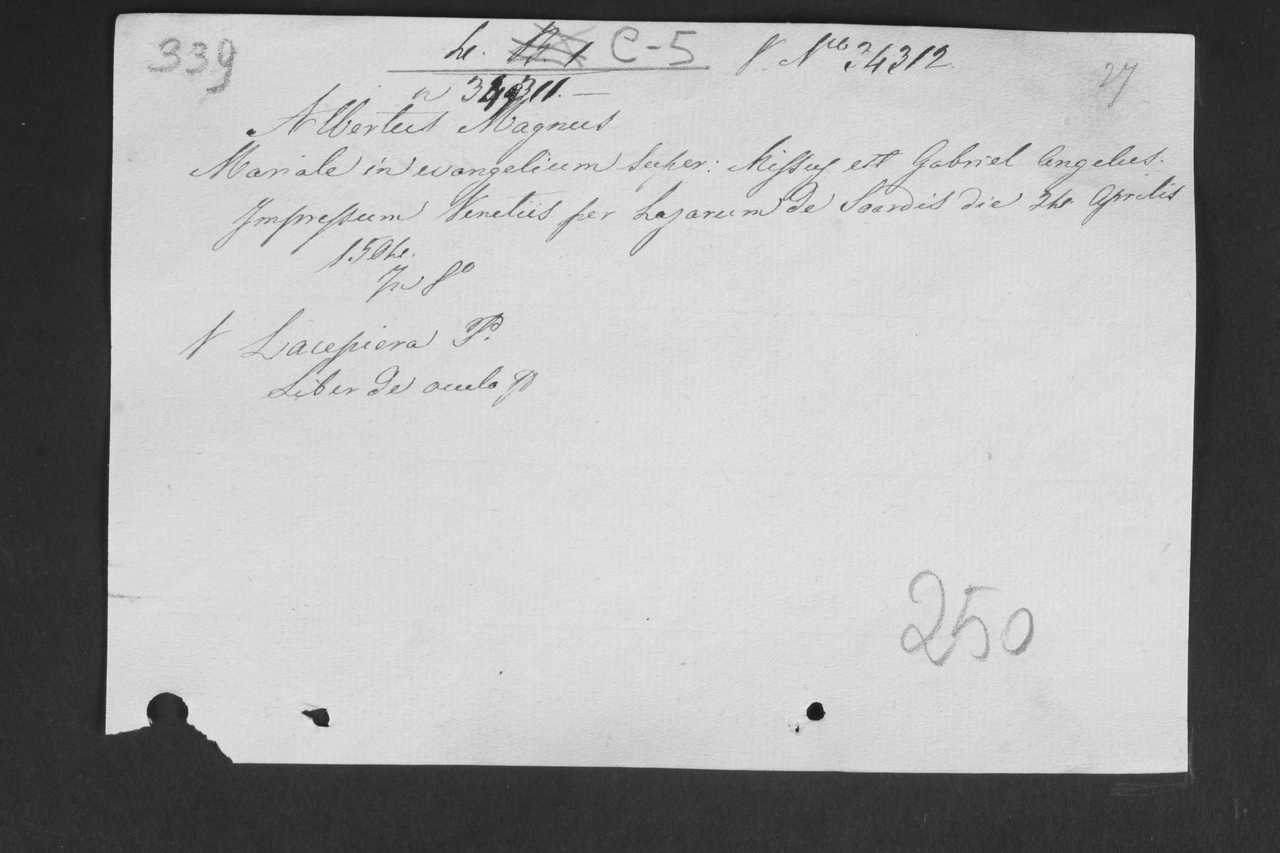 339
C-5
V. No 34312.
27
n 34311. —
Albertus Magnus
Mariale in evangelium super: Missus est Gabriel Angelus.
Impressum Venetiis per Lazarum de Soardis die 24 Aprilis
1504.
In 8o
Lacepiera P.
Liber de oculo
250